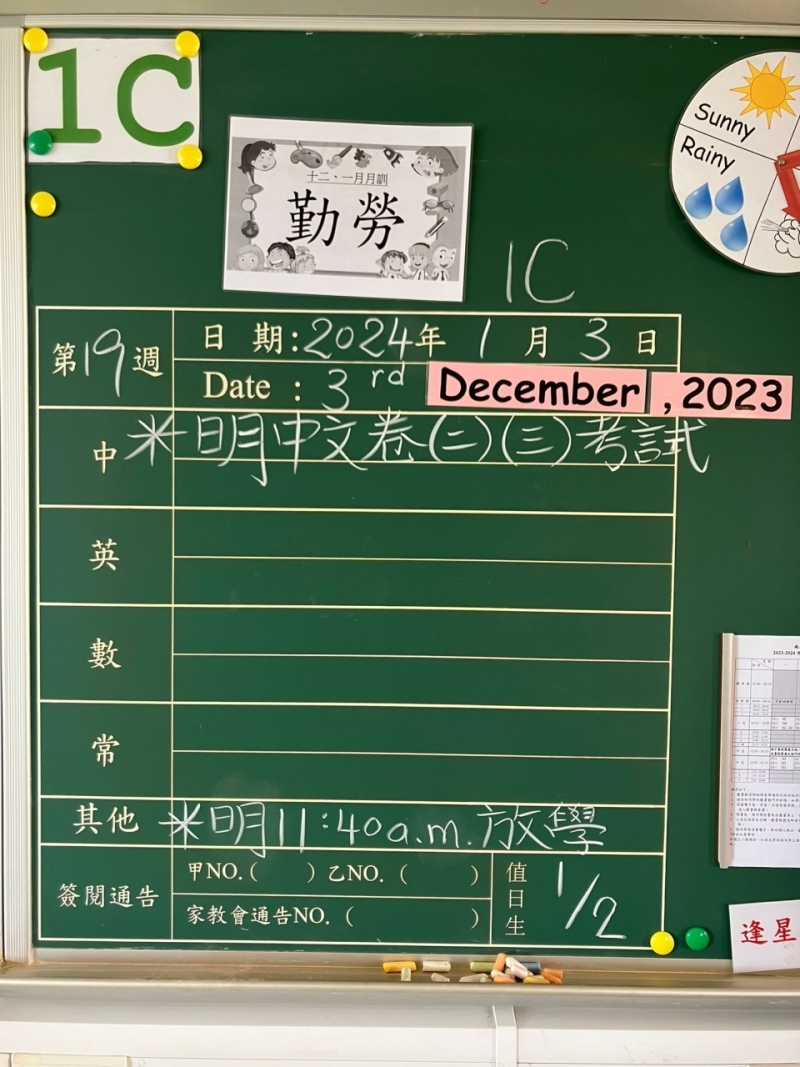 1C
十二、一月月訓
勤勞
Sunny
Rainy
1C
第19週
日 期:2024年 1 月 3 日
Date : 3rd December , 2023
中 *明中文卷(二)(三)考試
英
數
常
其他 *明11:40a.m.放學
簽閱通告
甲NO.( ) 乙NO.( )
家教會通告NO.( )
值日生 1/2
2023-2024
逢星